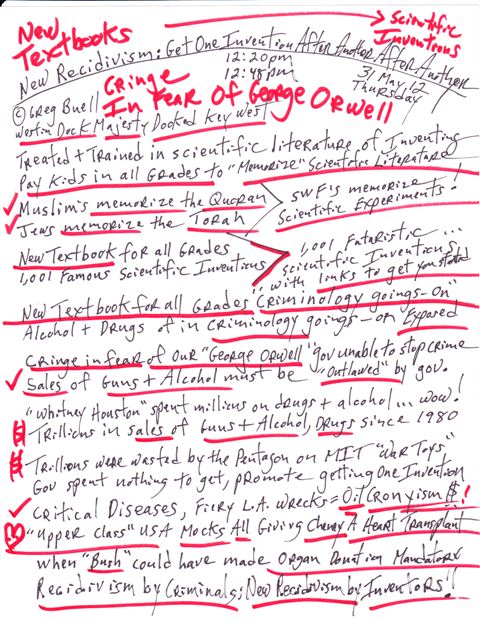 New Textbooks → Scientific Inventions
New Recidivism: Get One Invention After Another After Another
12:20pm
12:48pm
31 May 12
Thursday
Cringe
In Fear Of George Orwell
© Greg Buell
Westin Dock Majesty Docked Key West
Treated + Trained in scientific literature of Inventing
Pay Kids in all Grades to "Memorize" Scientific Literature
✓ Muslim's memorize the Quoran
✓ Jews memorize the Torah
SWF's memorize
Scientific Experiments!
New Textbook for all Grades
1,001 Famous Scientific Inventions
1,001 Futaristic...
Scientific Inventions
with links to get you started
New Textbook for all Grades "Criminology goings-on"
Alcohol + Drugs of in criminology goings-on Expared
Cringe in fear of our "George Orwell" gov unable to stop crime
✓ Sales of Guns + Alcohol must be "Outlawed" by gov.
"Whitney Houston" spent millions on drugs + alcohol... wow!
Trillions in sales of Guns + Alcohol, Drugs since 1980
Trillions were wasted by the Pentagon on MIT "War Toys"
Gov spent nothing to get, promote getting One Invention
✓ Critical Diseases, Fiery L.A. Wrecks = Oil Cronyism $!
"Upper Class" USA Mocks All Giving Cheney A Heart Transplant
when "Bush" could have made Organ Donation Mandatory
Recidivism by Criminals; New Recidivism by Inventors!!